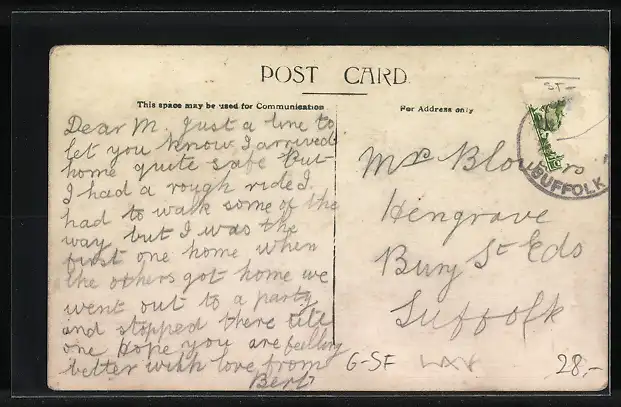 POST CARD
This space may be used for Communication
For Address only
Dear M. Just a line to
let you know I arrived
home quite safe But
I had a rough ride I
had to walk some of the
way but I was the
first one home when
the others got home we
went out to a party
and stopped there till
one Hope you are feeling
better with love from
Bert
Mrs Blowers
Hengrave
Bury St Eds
Suffolk
SUFFOLK
G-SF
28,-